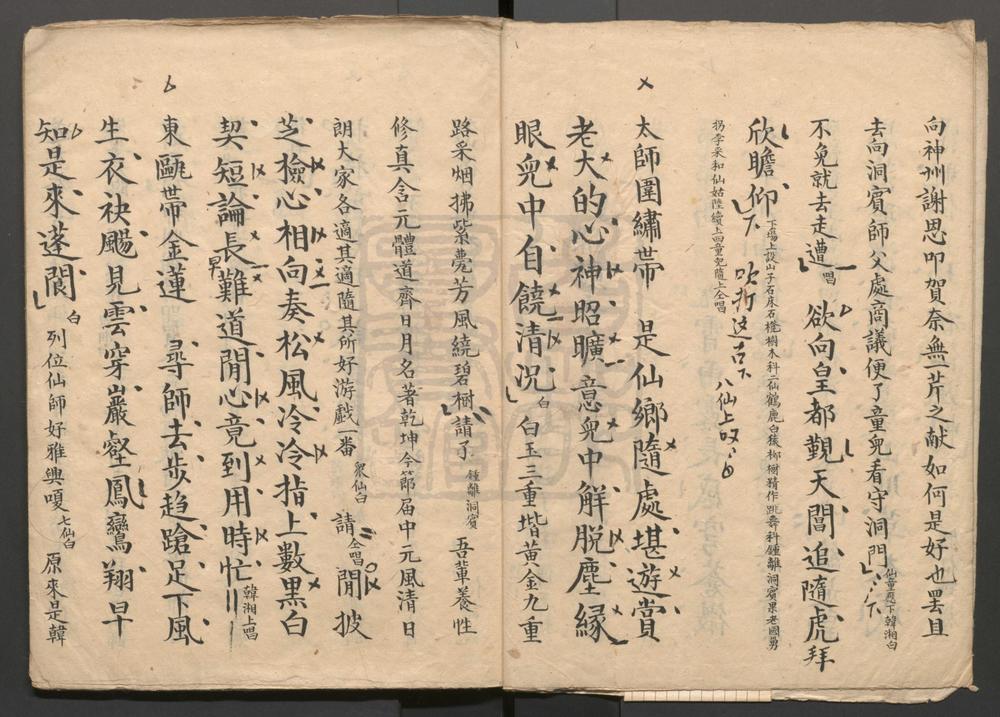 向神州謝恩叩賀奈無芹之献如何是好也罷且
去向洞賓師父處商議便了童兒看守洞門仙童應下韓湘白
不免就去走遭唱欲向皇都覲天閶追隨虎拜
欣瞻仰下下場上設山子石床石櫈樹木科二仙鶴鹿白猿柳樹精作跳舞科鍾離洞賓果老國舅
拐李采和仙姑陸續上四童兒隨上仝唱 八仙上
太師圍繡帶 是仙鄉隨處堪遊賞
老大的心神昭曠意兒中解脱塵縁
眼兒中自饒清況白白玉三重堦黃金九重
路采烟拂紫薨芳風繞碧樹請了鍾離洞賓吾輩養性
修真含元體道齊日月名著乾坤今節届中元風清日
朗大家各適其適隨其所好游戲一番衆仙白請仝唱閒披
芝檢心相向奏松風冷冷指上數黑白
契短論長難道閒心竟到用時忙韓湘上唱
東甌帶金蓮 尋師去步趋蹌足下風
生衣袂颺見雲穿巖壑鳳鸞翔早
知是來蓬閬白列位仙師好雅興嗄七仙白原來是韓